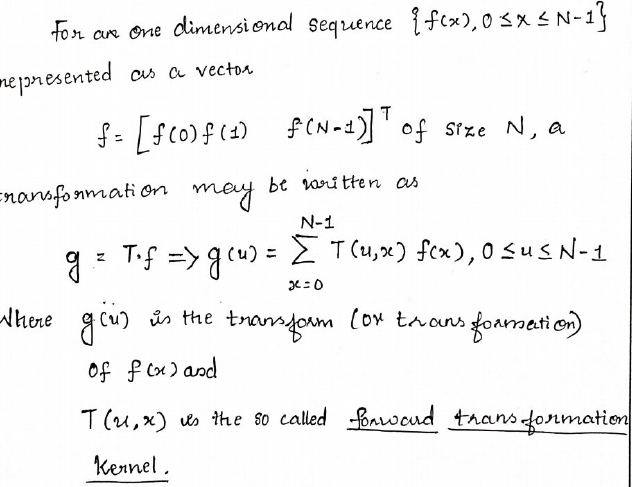 For are one dimensional sequence {f(x), 0 ≤ x ≤ N-1}
represented as a vector
f = [f(0) f(1) f(N-1)]ᵀ of size N, a
transformation may be written as
g = T·f => g(u) = Σ_{x=0}^{N-1} T(u,x) f(x), 0 ≤ u ≤ N-1
Where g(u) is the transform (or transformation)
of f(x) and
T(u,x) is the so called forward transformation
Kernel.